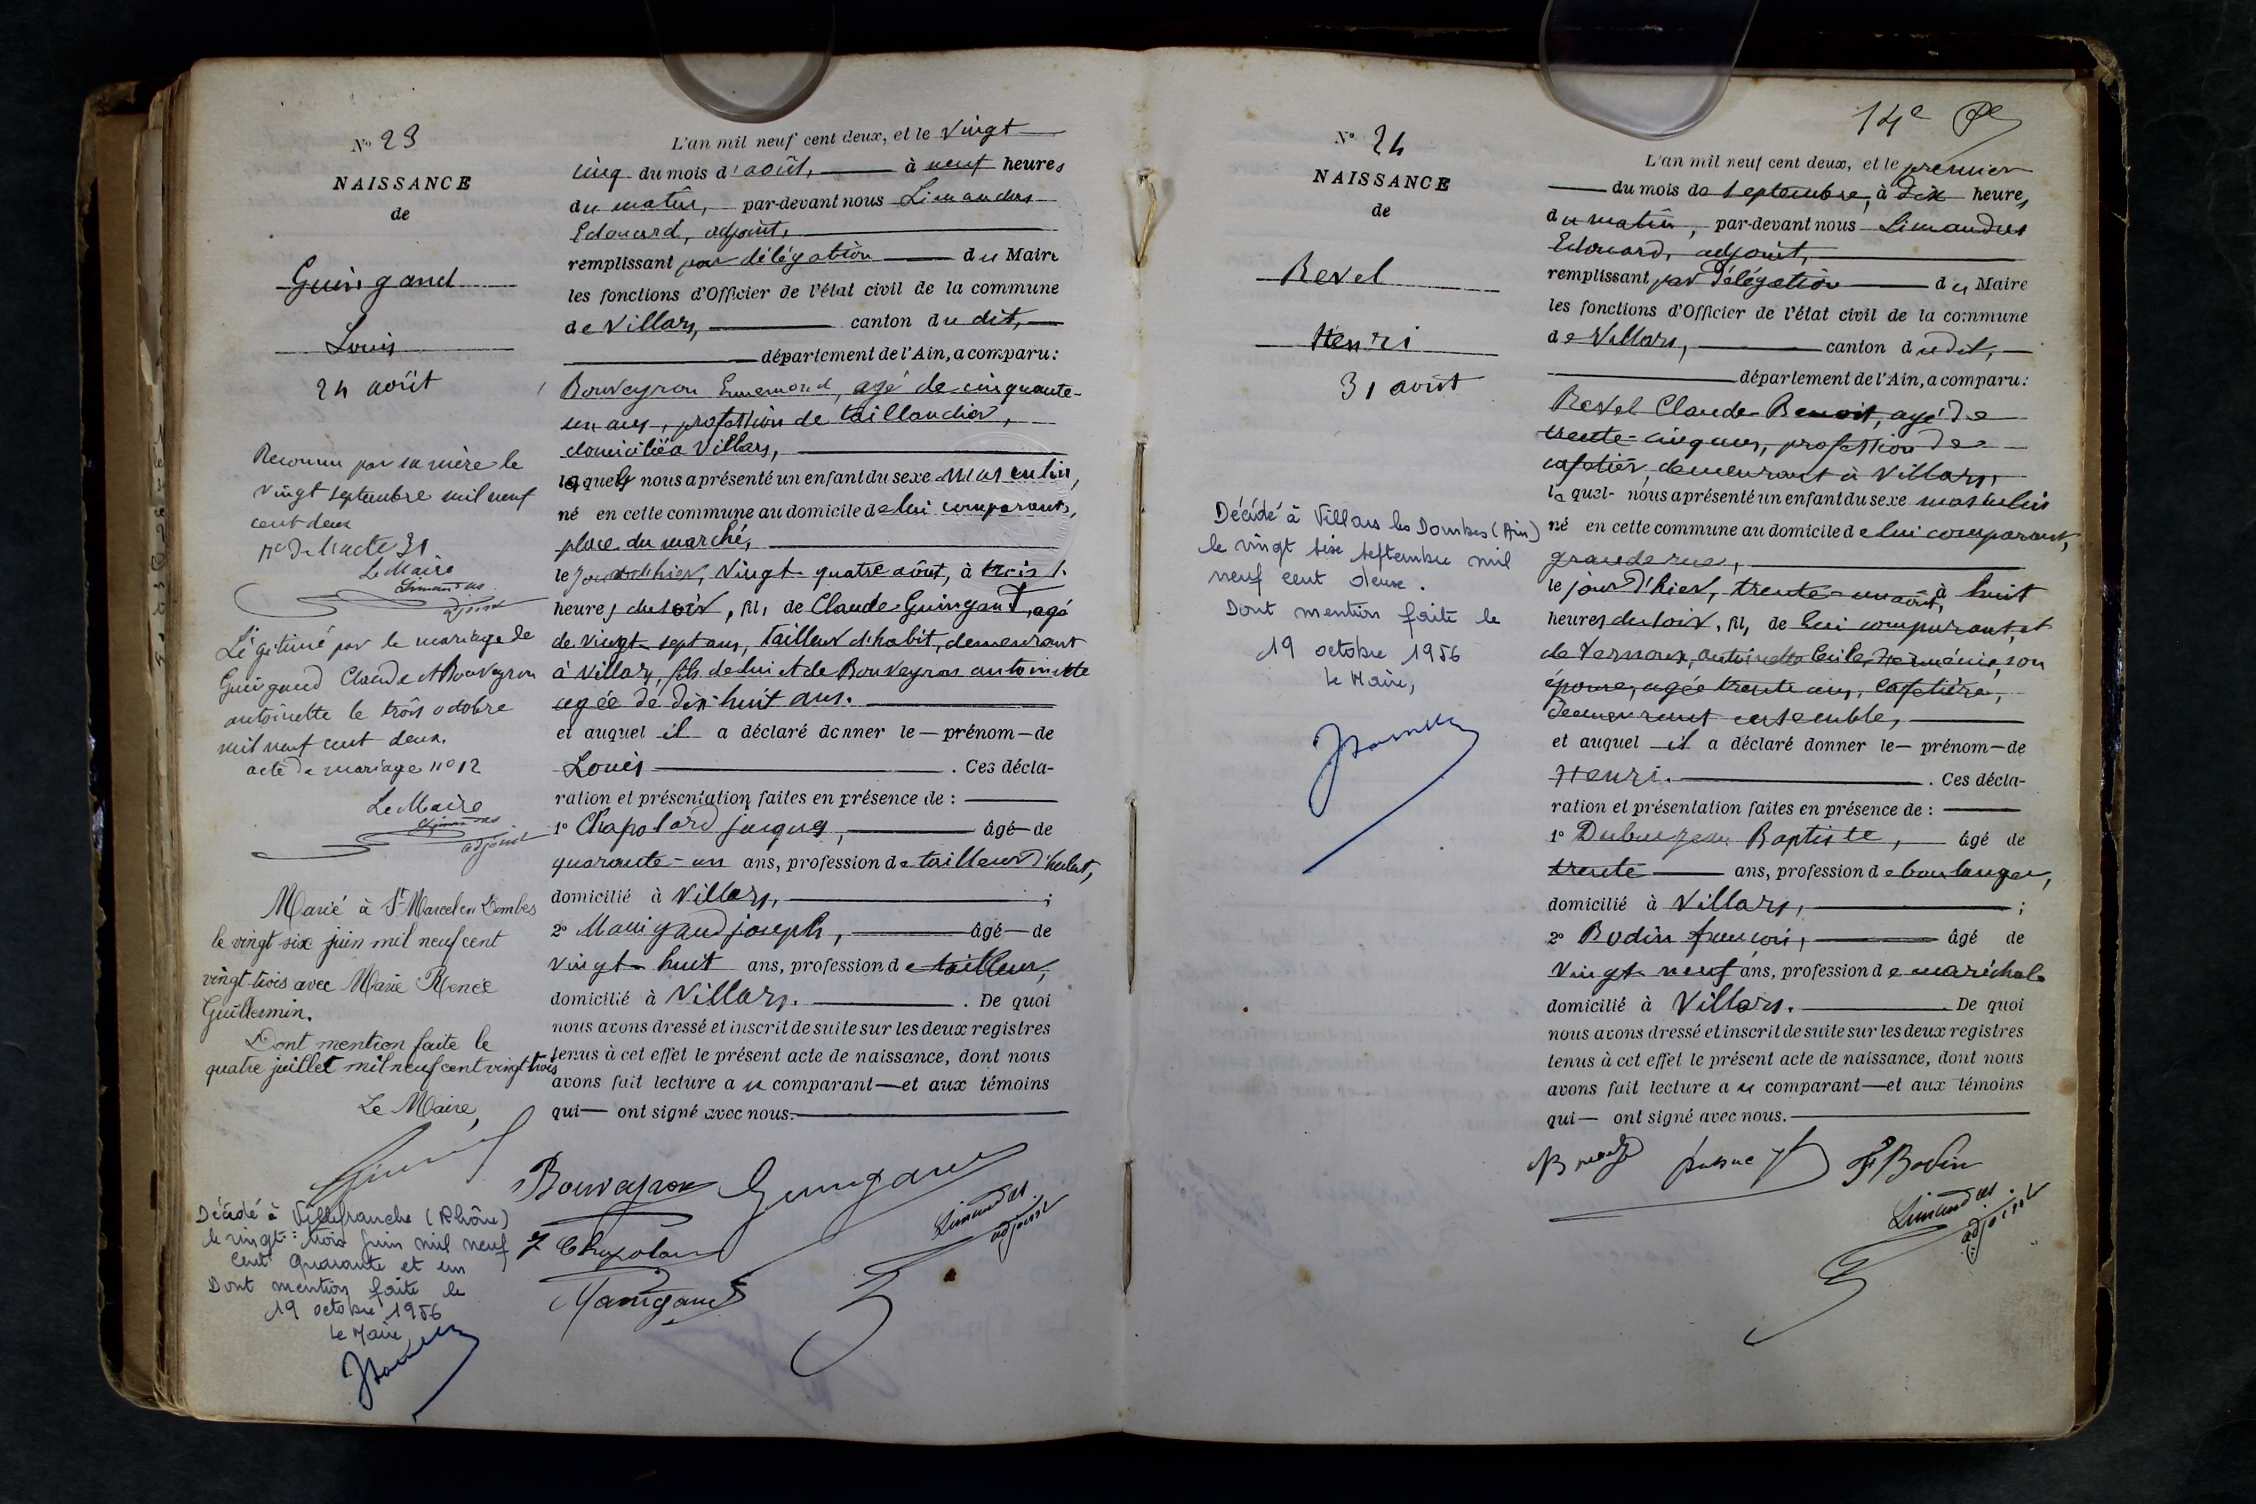 N° 23
NAISSANCE
de
Guingand
Louis
24 août
Reconnu par sa mère le
vingt septembre mil neuf
cent deux
N° de l'acte 31
Le Maire
Limandas
adjoint
Légitimé par le mariage de
Guingand Claude et Bouveyron
antoinette le trois octobre
mil neuf cent deux.
acte de mariage n° 12
Le Maire
Limandas
adjoint
Marié à St Marcel en Dombes
le vingt six juin mil neuf cent
vingt-trois avec Marie Renée
Guillermin.
Dont mention faite le
quatre juillet mil neuf cent vingt trois
Le Maire,
Décédé à Villefranche (Rhône)
le vingt-trois juin mil neuf
cent quarante et un
Dont mention faite le
19 octobre 1956
Le Maire,
L'an mil neuf cent deux, et le vingt
cinq du mois d'août, à neuf heures
du matin, par-devant nous Limandas
Edouard, adjoint,
remplissant par délégation du Maire
les fonctions d'Officier de l'état civil de la commune
de Villars, canton du dit,
département de l'Ain, a comparu:
Bouveyron Ennemond, agé de cinquante-
un ans, profession de taillandier,
domicilié à Villars,
lequel nous a présenté un enfant du sexe masculin,
né en cette commune au domicile de lui comparant,
place du marché,
le jour d'hier, vingt quatre août, à trois
heures du soir, fils de Claude Guingand, agé
de vingt sept ans, tailleur d'habit, demeurant
à Villars, fils de lui et de Bouveyron antoinette
agée de dix-huit ans.
et auquel il a déclaré donner le — prénom — de
Louis . Ces décla-
ration et présentation faites en présence de :
1° Chapolard jacques, âgé de
quarante-un ans, profession de tailleur d'habit,
domicilié à Villars, ;
2° Manigand joseph, âgé — de
vingt-huit ans, profession de tailleur,
domicilié à Villars. . De quoi
nous avons dressé et inscrit de suite sur les deux registres
tenus à cet effet le présent acte de naissance, dont nous
avons fait lecture au comparant — et aux témoins
qui — ont signé avec nous.
Bouveyron Guingand
J Chapolard
Limandas
adjoint
Manigand
14e
N° 24
NAISSANCE
de
Revel
Henri
31 août
Décédé à Villars les Dombes (Ain)
le vingt six septembre mil
neuf cent deux.
Dont mention faite le
19 octobre 1956
Le Maire,
L'an mil neuf cent deux, et le premier
du mois de septembre, à dix heures
du matin, par-devant nous Limandas
Edouard, adjoint,
remplissant par délégation du Maire
les fonctions d'Officier de l'état civil de la commune
de Villars, canton du dit,
département de l'Ain, a comparu:
Revel Claude Benoit, agé de
trente-cinq ans, profession de
cafetier, demeurant à Villars,
lequel nous a présenté un enfant du sexe masculin
né en cette commune au domicile de lui comparant,
grande rue,
le jour d'hier, trente-un août, à huit
heures du soir, fils de lui comparant, et
de Vernoux, antoinette son
épouse, agée trente ans, cafetière,
demeurant ensemble,
et auquel il a déclaré donner le — prénom — de
Henri. . Ces décla-
ration et présentation faites en présence de :
1° Baptiste, âgé de
trente ans, profession de boulanger,
domicilié à Villars, ;
2° Bodin françois, âgé de
vingt-neuf ans, profession de maréchal
domicilié à Villars. De quoi
nous avons dressé et inscrit de suite sur les deux registres
tenus à cet effet le présent acte de naissance, dont nous
avons fait lecture au comparant — et aux témoins
qui — ont signé avec nous.
F Bodin
Limandas
adjoint